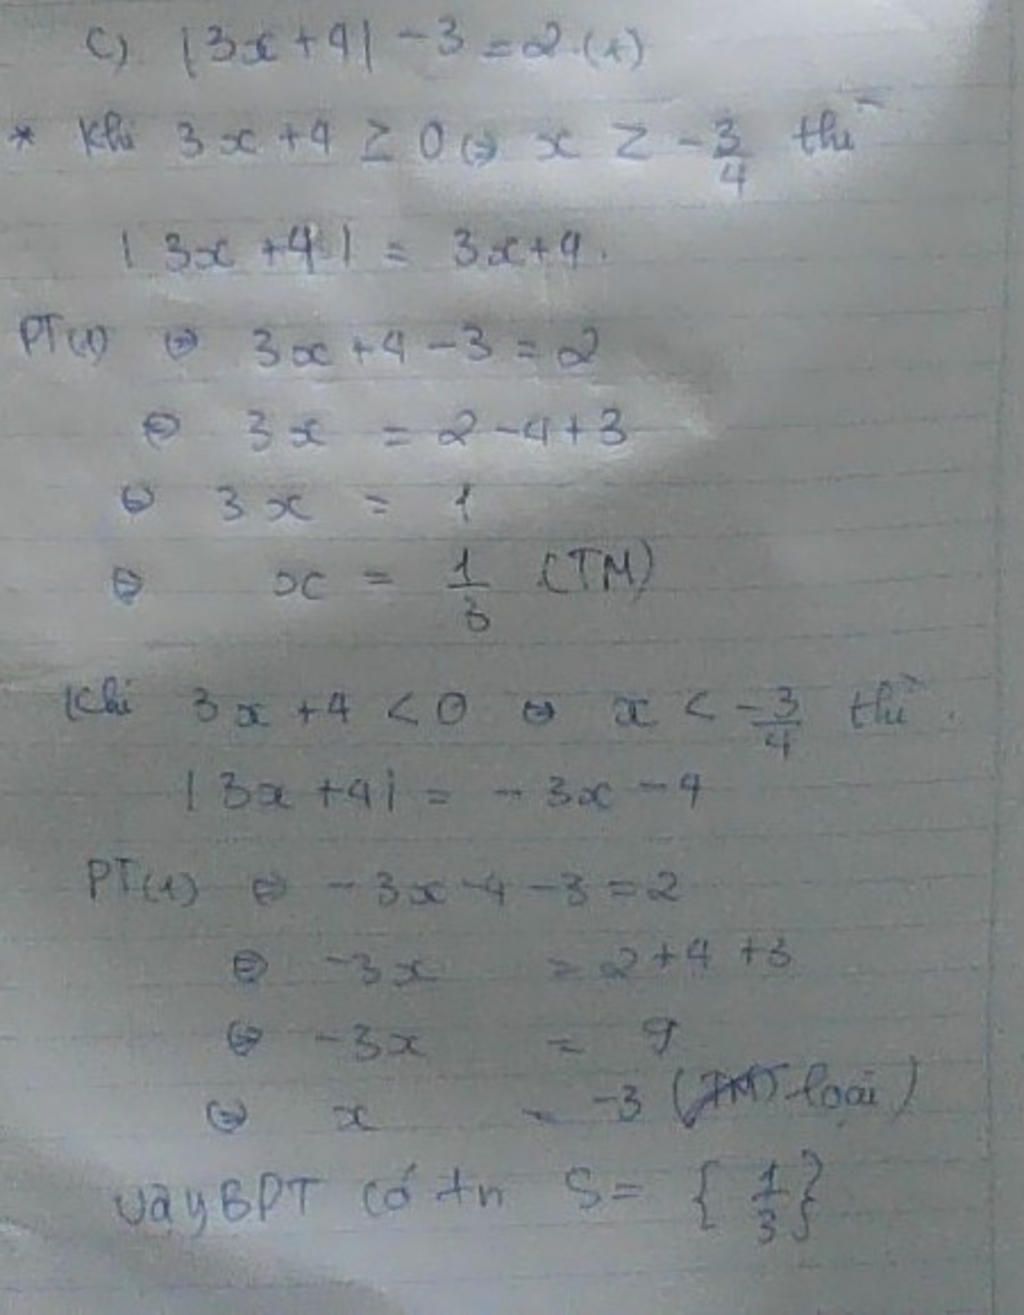 c) |3x+4| - 3 = 2 (1)
* Khi 3x+4 ≥ 0 ⇔ x ≥ -3/4 thì
|3x+4| = 3x+4.
PT(1) ⇔ 3x+4-3 = 2
⇔ 3x = 2-4+3
⇔ 3x = 1
⇔ x = 1/3 (TM)
Khi 3x+4 < 0 ⇔ x < -3/4 thì.
|3x+4| = -3x-4
PT(1) ⇔ -3x-4-3 = 2
⇔ -3x = 2+4+3
⇔ -3x = 9
⇔ x = -3 (TM) loại)
Vậy BPT có tn S = {1/3}